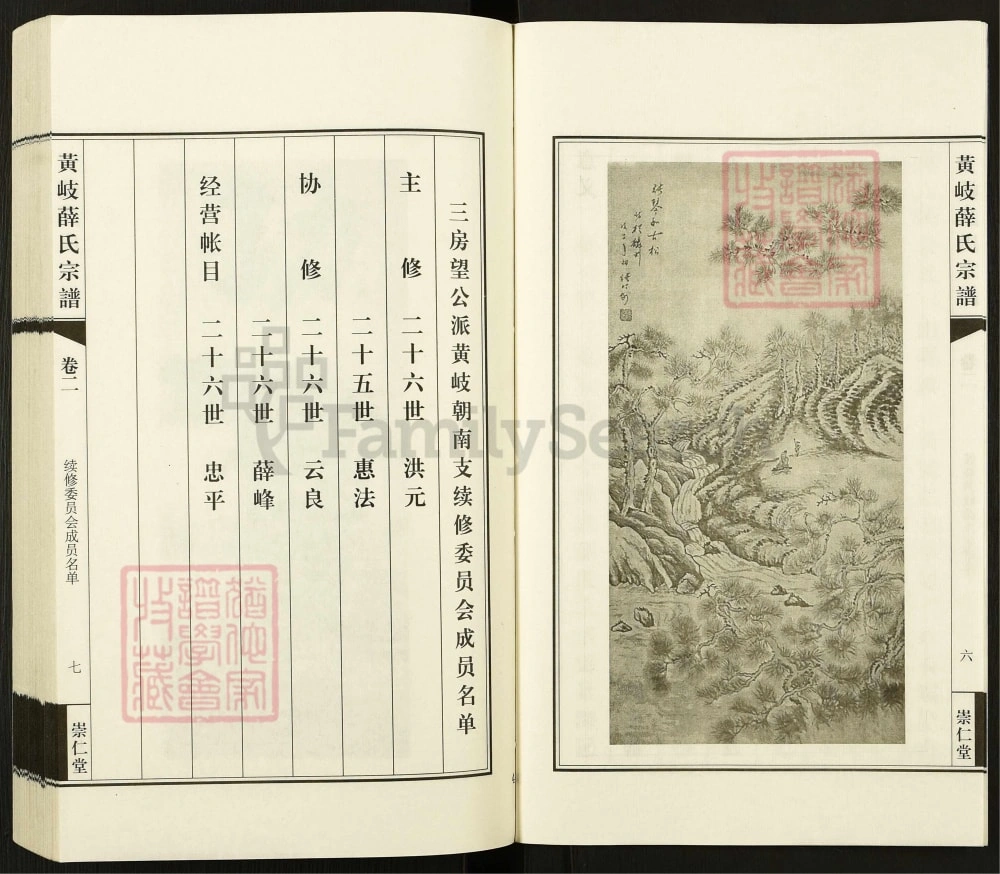 黃岐薛氏宗譜
六
崇仁堂
張琴和古松
三房望公派黄岐朝南支续修委员会成员名单
主修 二十六世 洪元
二十五世 惠法
协修 二十六世 云良
二十六世 薛峰
经营帐目 二十六世 忠平
黃岐薛氏宗譜
卷二
续修委员会成员名单
七
崇仁堂
猶他家
譜學會
收藏
猶他家
譜學會
收藏
FamilySearch